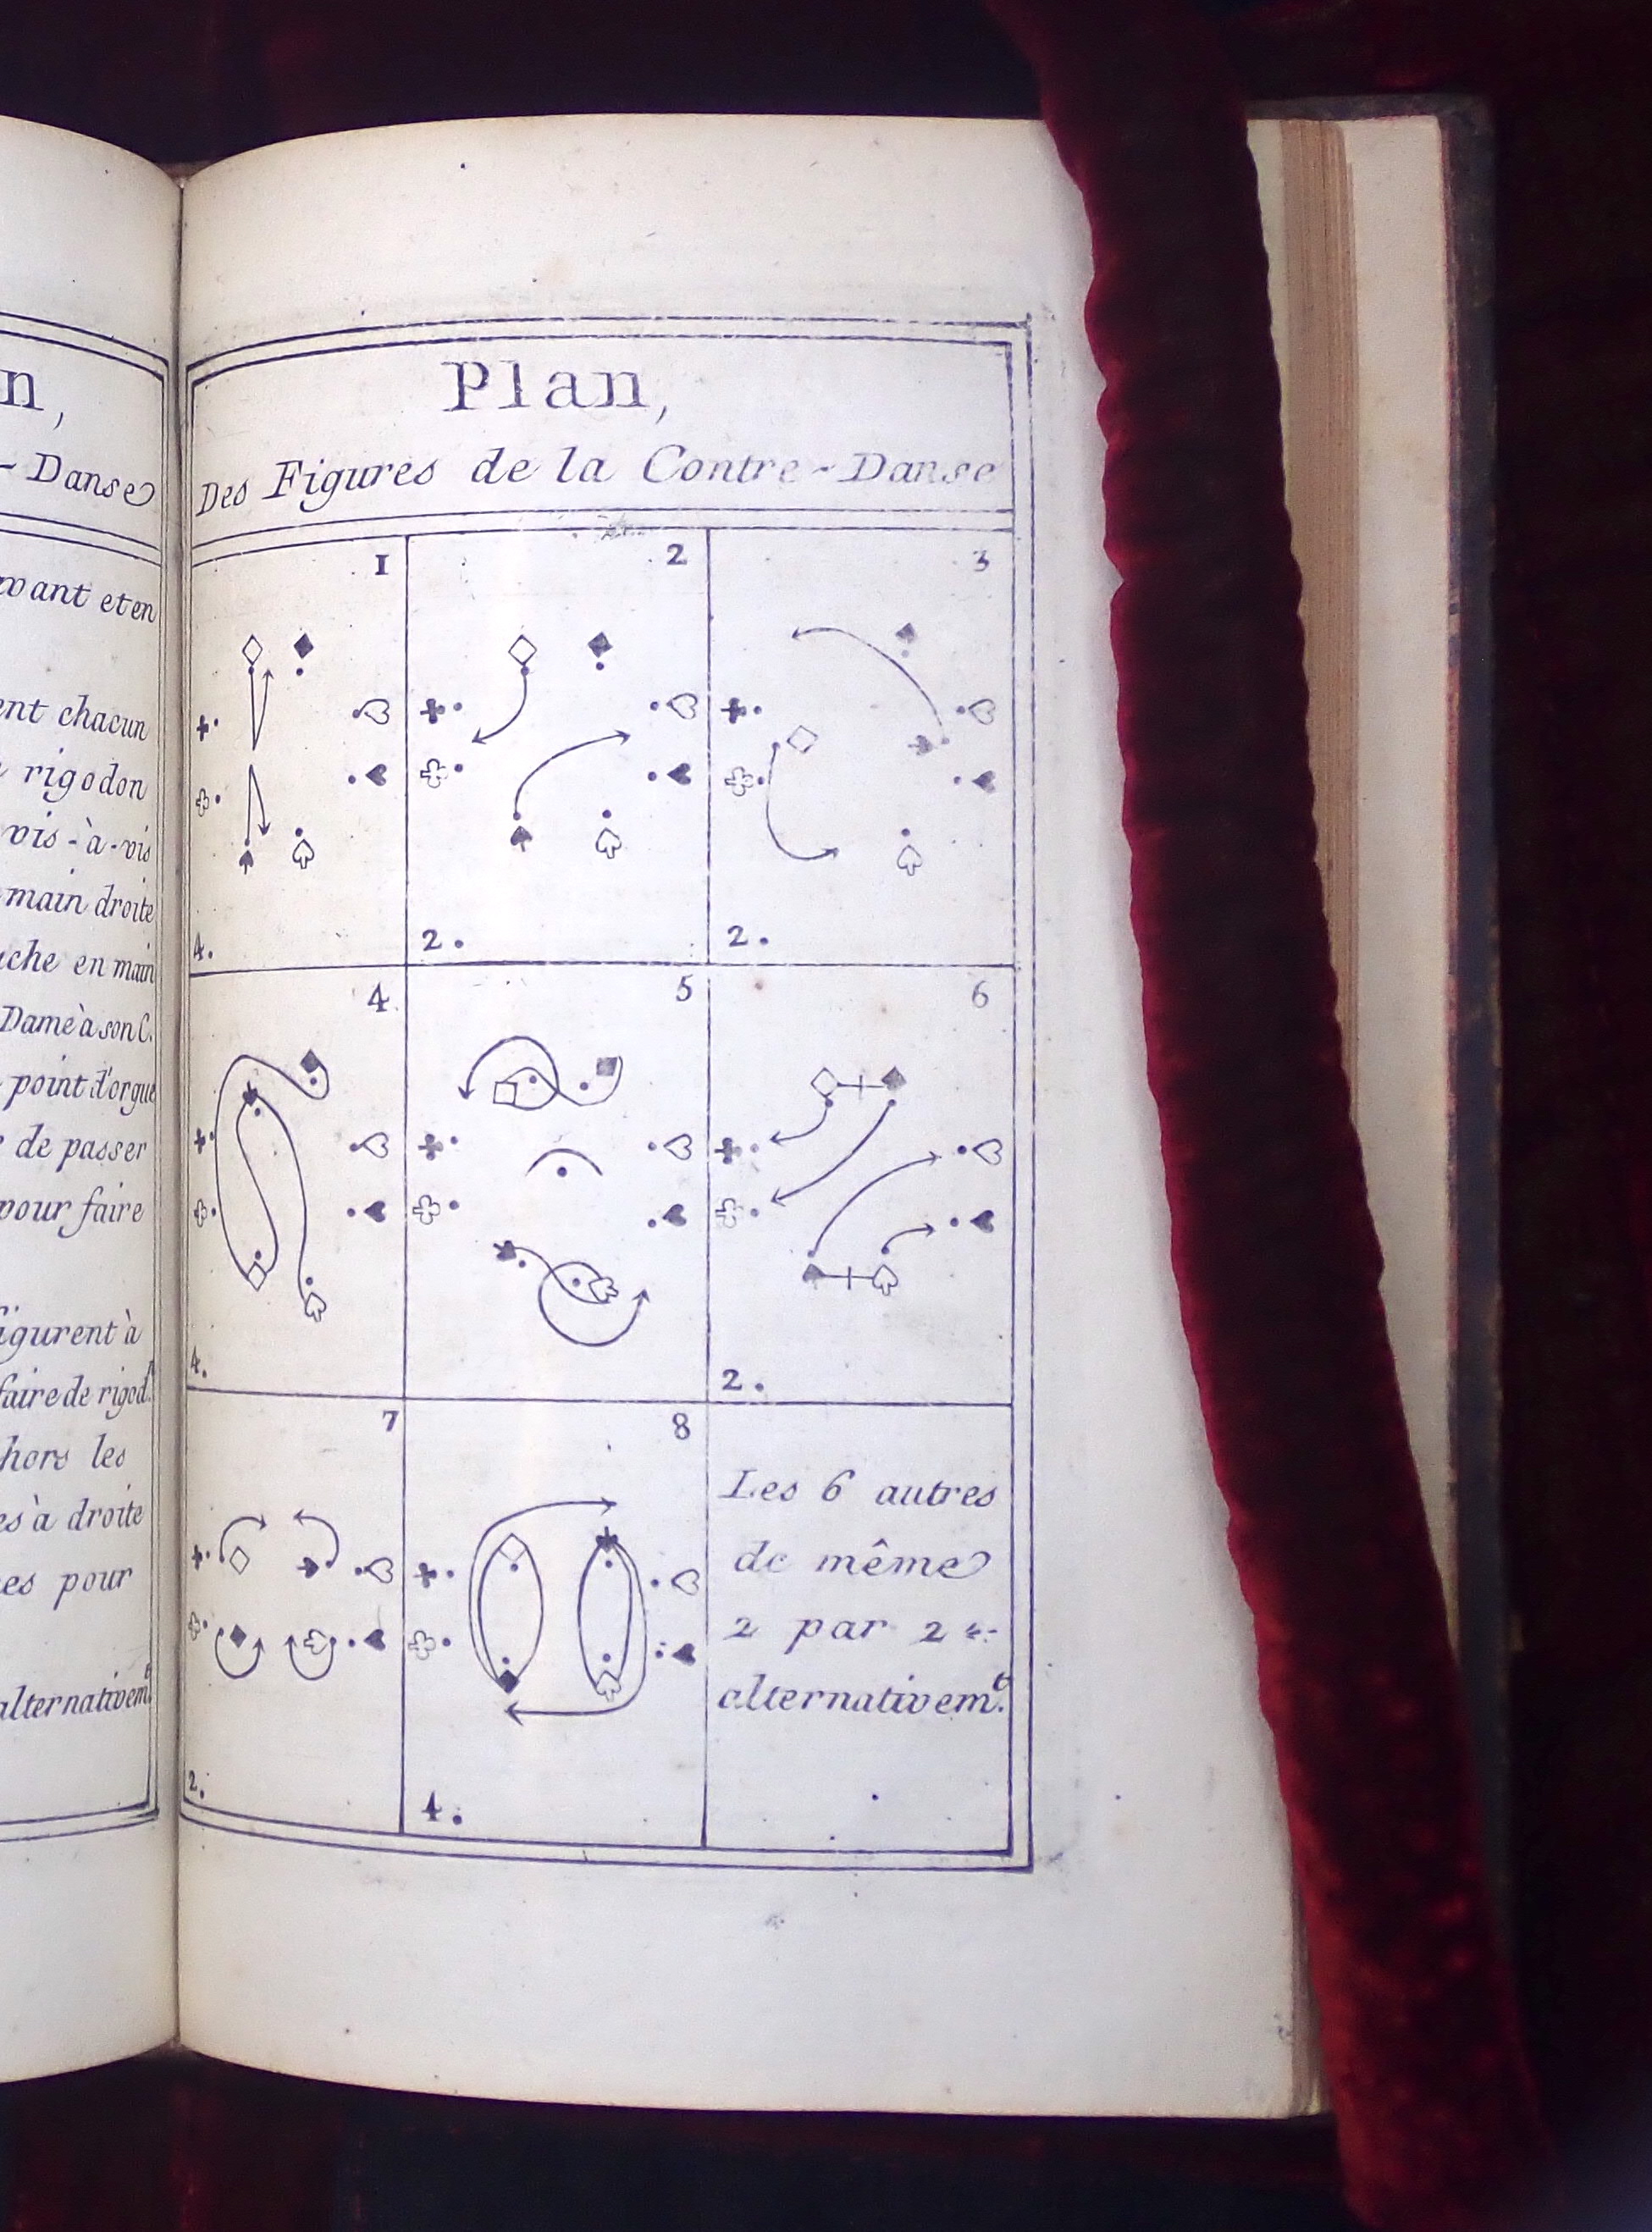 n,
- Danse
vant et en
ent chacun
rigodon
vis-à-vis
main droite
che en main
Dame à son C.
point d'orgue
de passer
pour faire
figurent à
faire de rigod.
hors les
es à droite
es pour
alternativem.t
Plan,
Des Figures de la Contre-Danse
1
4.
2
2.
3
2.
4
4.
5
6
2.
7
2.
8
4.
Les 6 autres
de même
2 par 2
alternativem.t